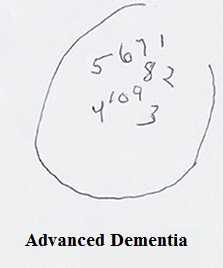 5 6 7 1
8 2
4 10 9
3
Advanced Dementia